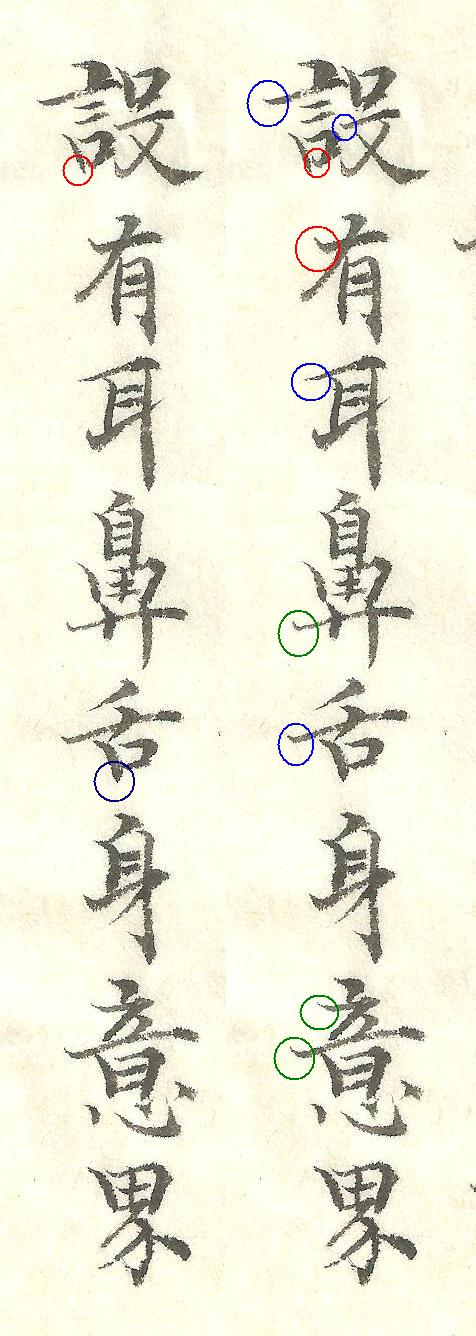 設有耳鼻舌身意界
設有耳鼻舌身意界